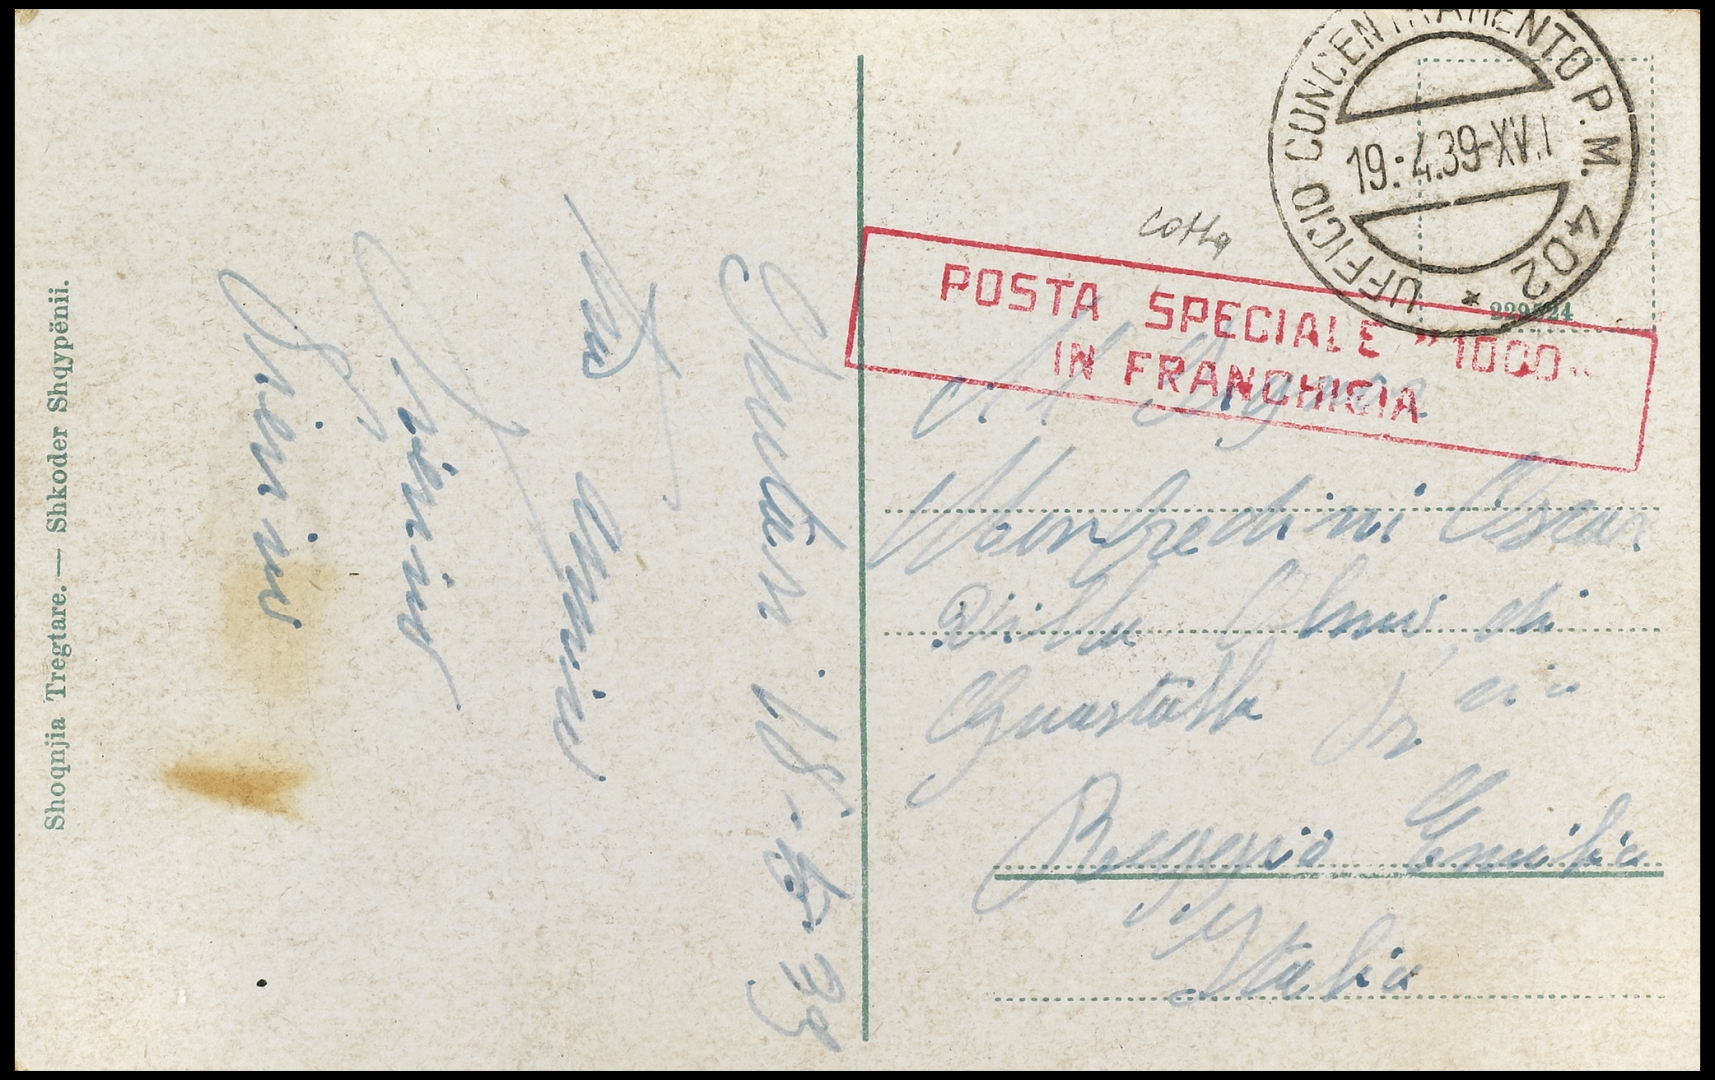 Shoqnjia Tregtare. — Shkoder Shqypënii.
Scutari 18-4-39
Tuo
UFFICIO CONCENTRAMENTO P.M. 402 *
19.4.39-XVI
cotta
POSTA SPECIALE "1000"
IN FRANCHIGIA
Al Signor
Manfredini Oscar
Villa di
Guastalla
Reggio Emilia
Italia